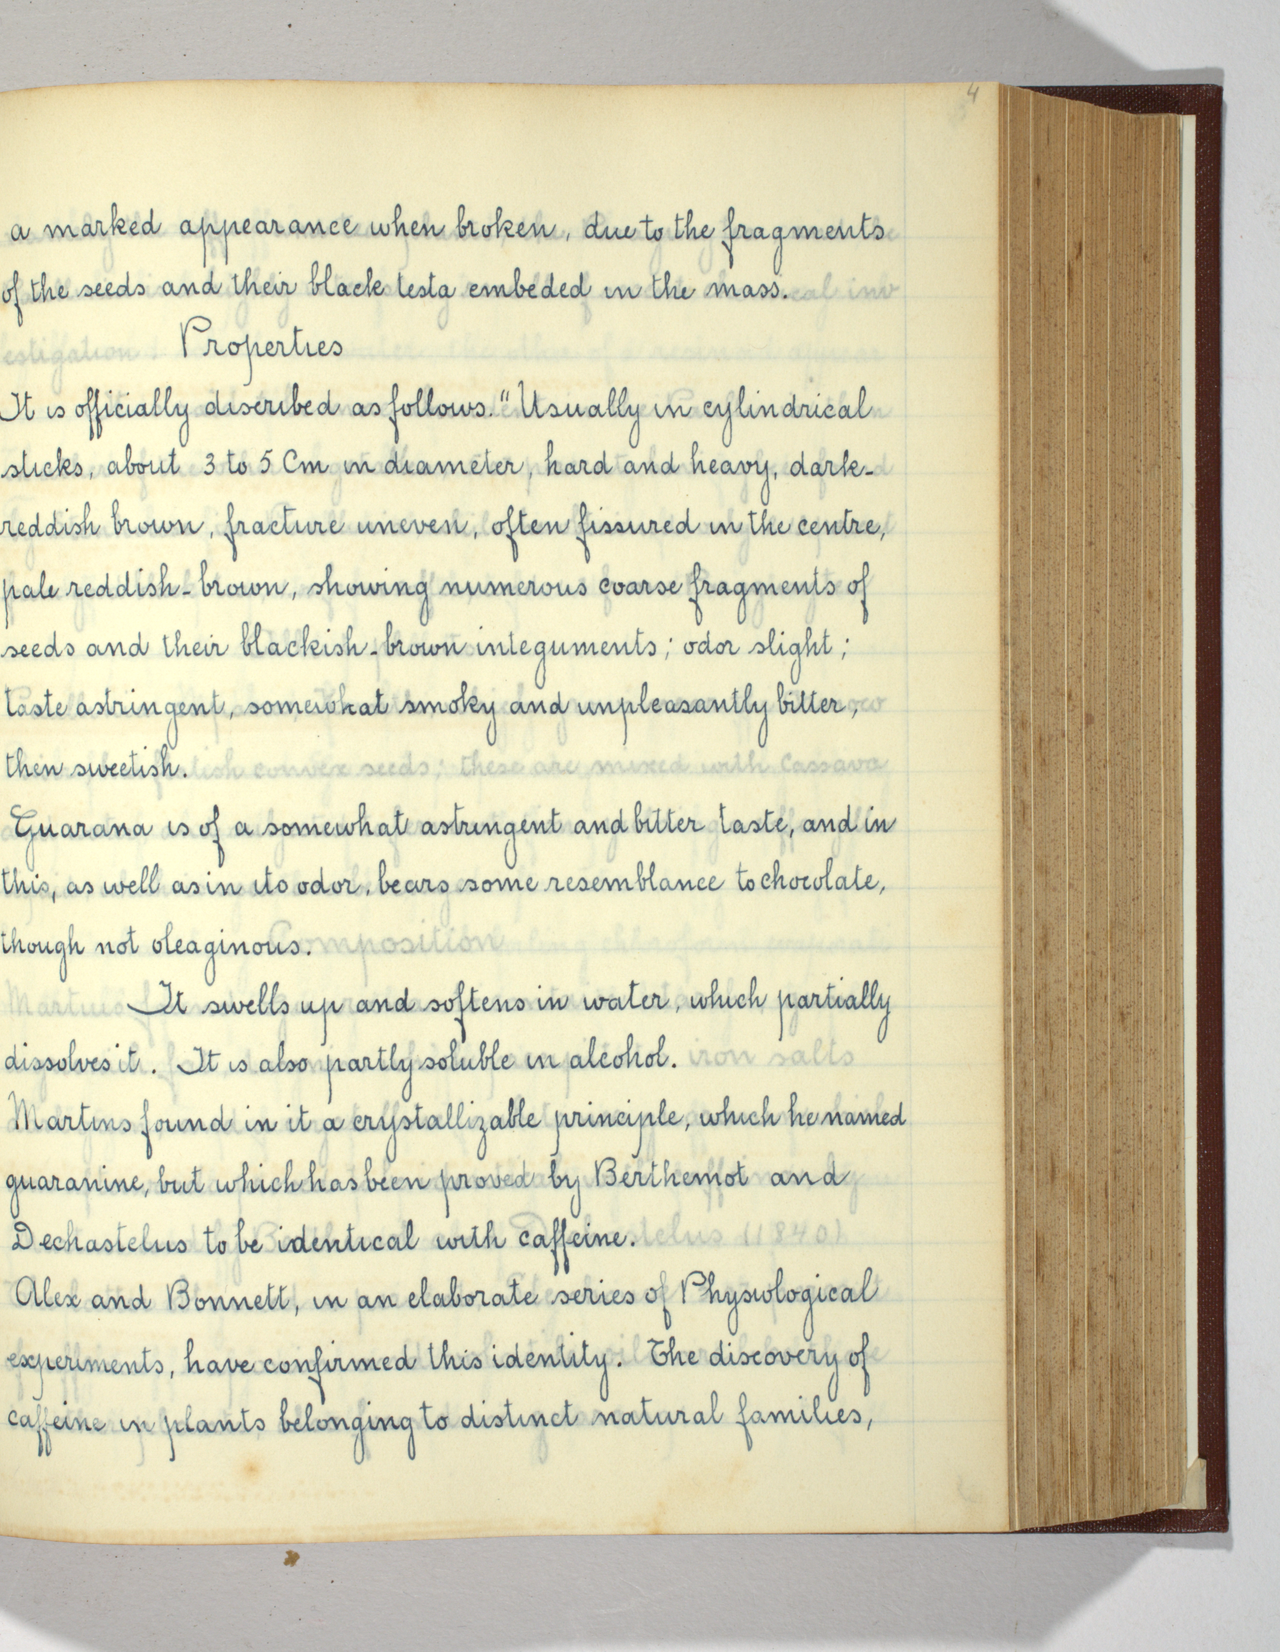 4
a marked appearance when broken, due to the fragments
of the seeds and their black testa embeded in the mass.
Properties
It is officially discribed as follows. "Usually in cylindrical
sticks, about 3 to 5 Cm in diameter, hard and heavy, dark-
reddish brown, fracture uneven, often fissured in the centre,
pale reddish-brown, showing numerous coarse fragments of
seeds and their blackish-brown integuments; odor slight;
taste astringent, somewhat smoky and unpleasantly bitter,
then sweetish.
Guarana is of a somewhat astringent and bitter taste, and in
this, as well as in its odor, bears some resemblance to chocolate,
though not oleaginous.
It swells up and softens in water, which partially
dissolves it. It is also partly soluble in alcohol.
Martins found in it a crystallizable principle, which he named
guaranine, but which has been proved by Berthemot and
Dechastelus to be identical with caffeine.
Alex and Bonnett, in an elaborate series of Physiological
experiments, have confirmed this identity. The discovery of
caffeine in plants belonging to distinct natural families,